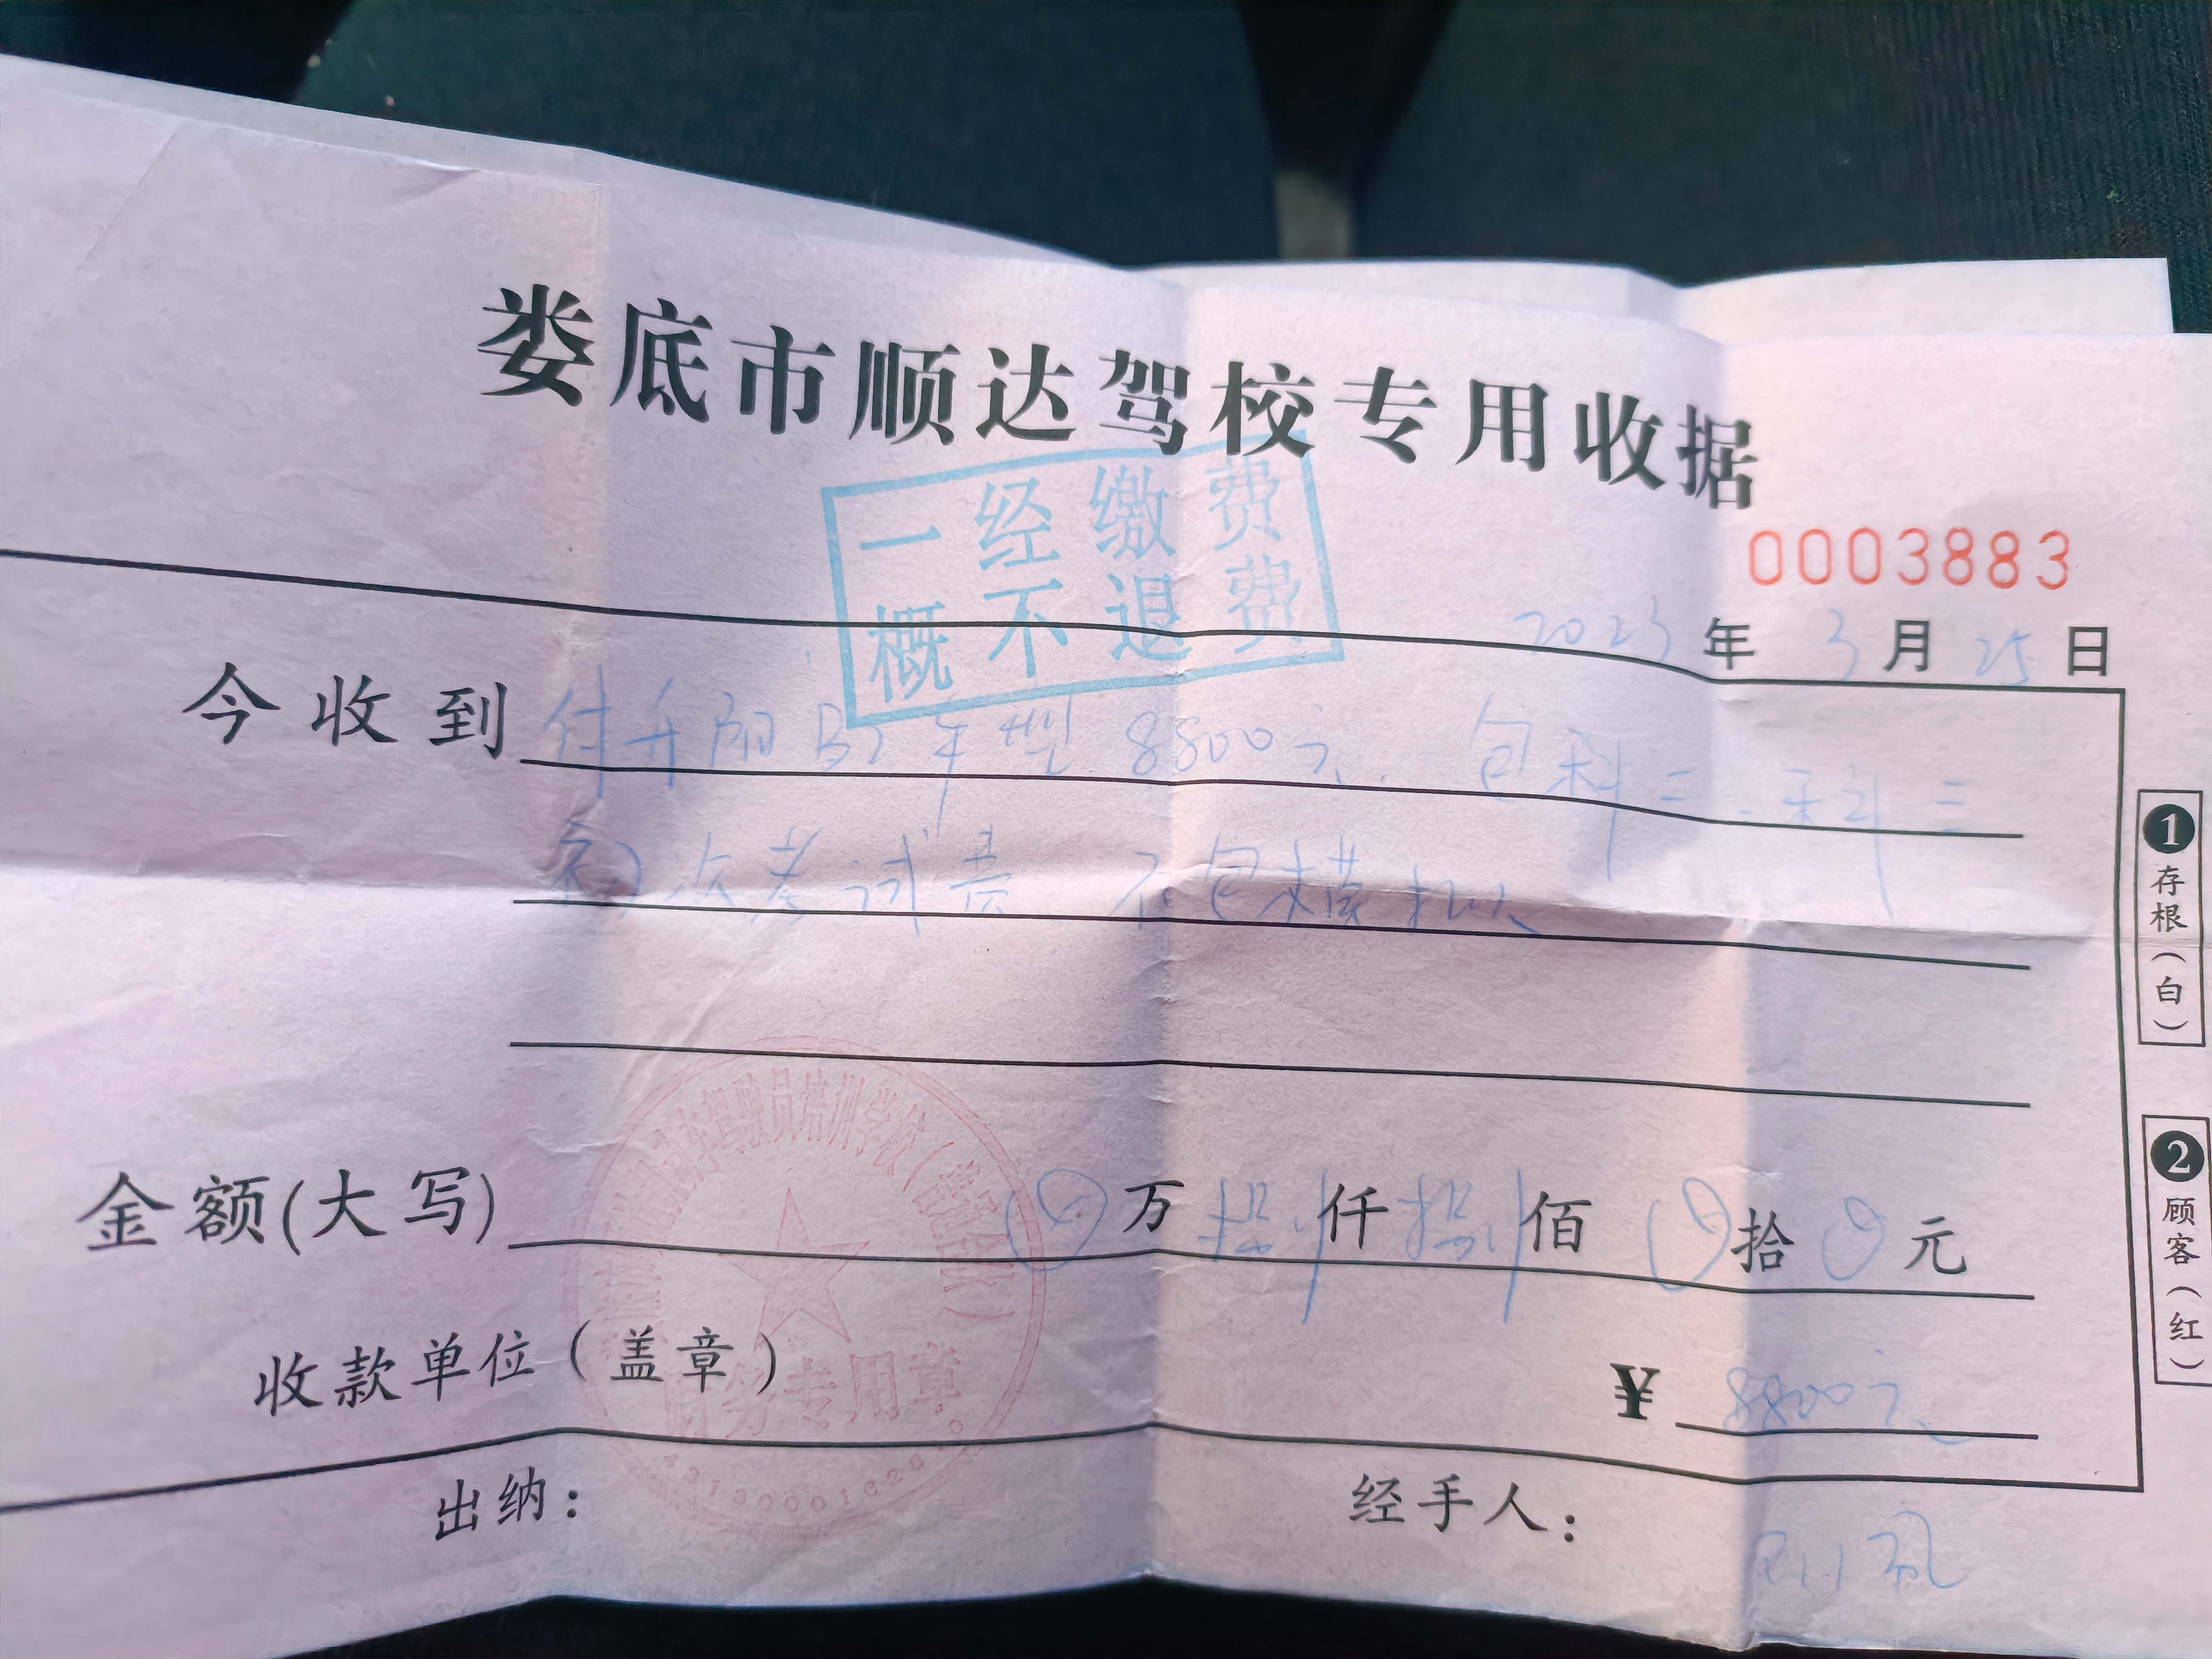 娄底市顺达驾校专用收据
一经缴费
概不退费
0003883
2023年3月25日
今收到 付升阳B2车型8800元. 包科二、科三
初次考试费 不包模拟
金额(大写) 万捌仟捌佰 拾 元
收款单位(盖章)
¥ 8800元
出纳:
经手人:
动车驾驶员培训学校(普通合伙)
财务专用章
❶存根(白)
❷顾客(红)